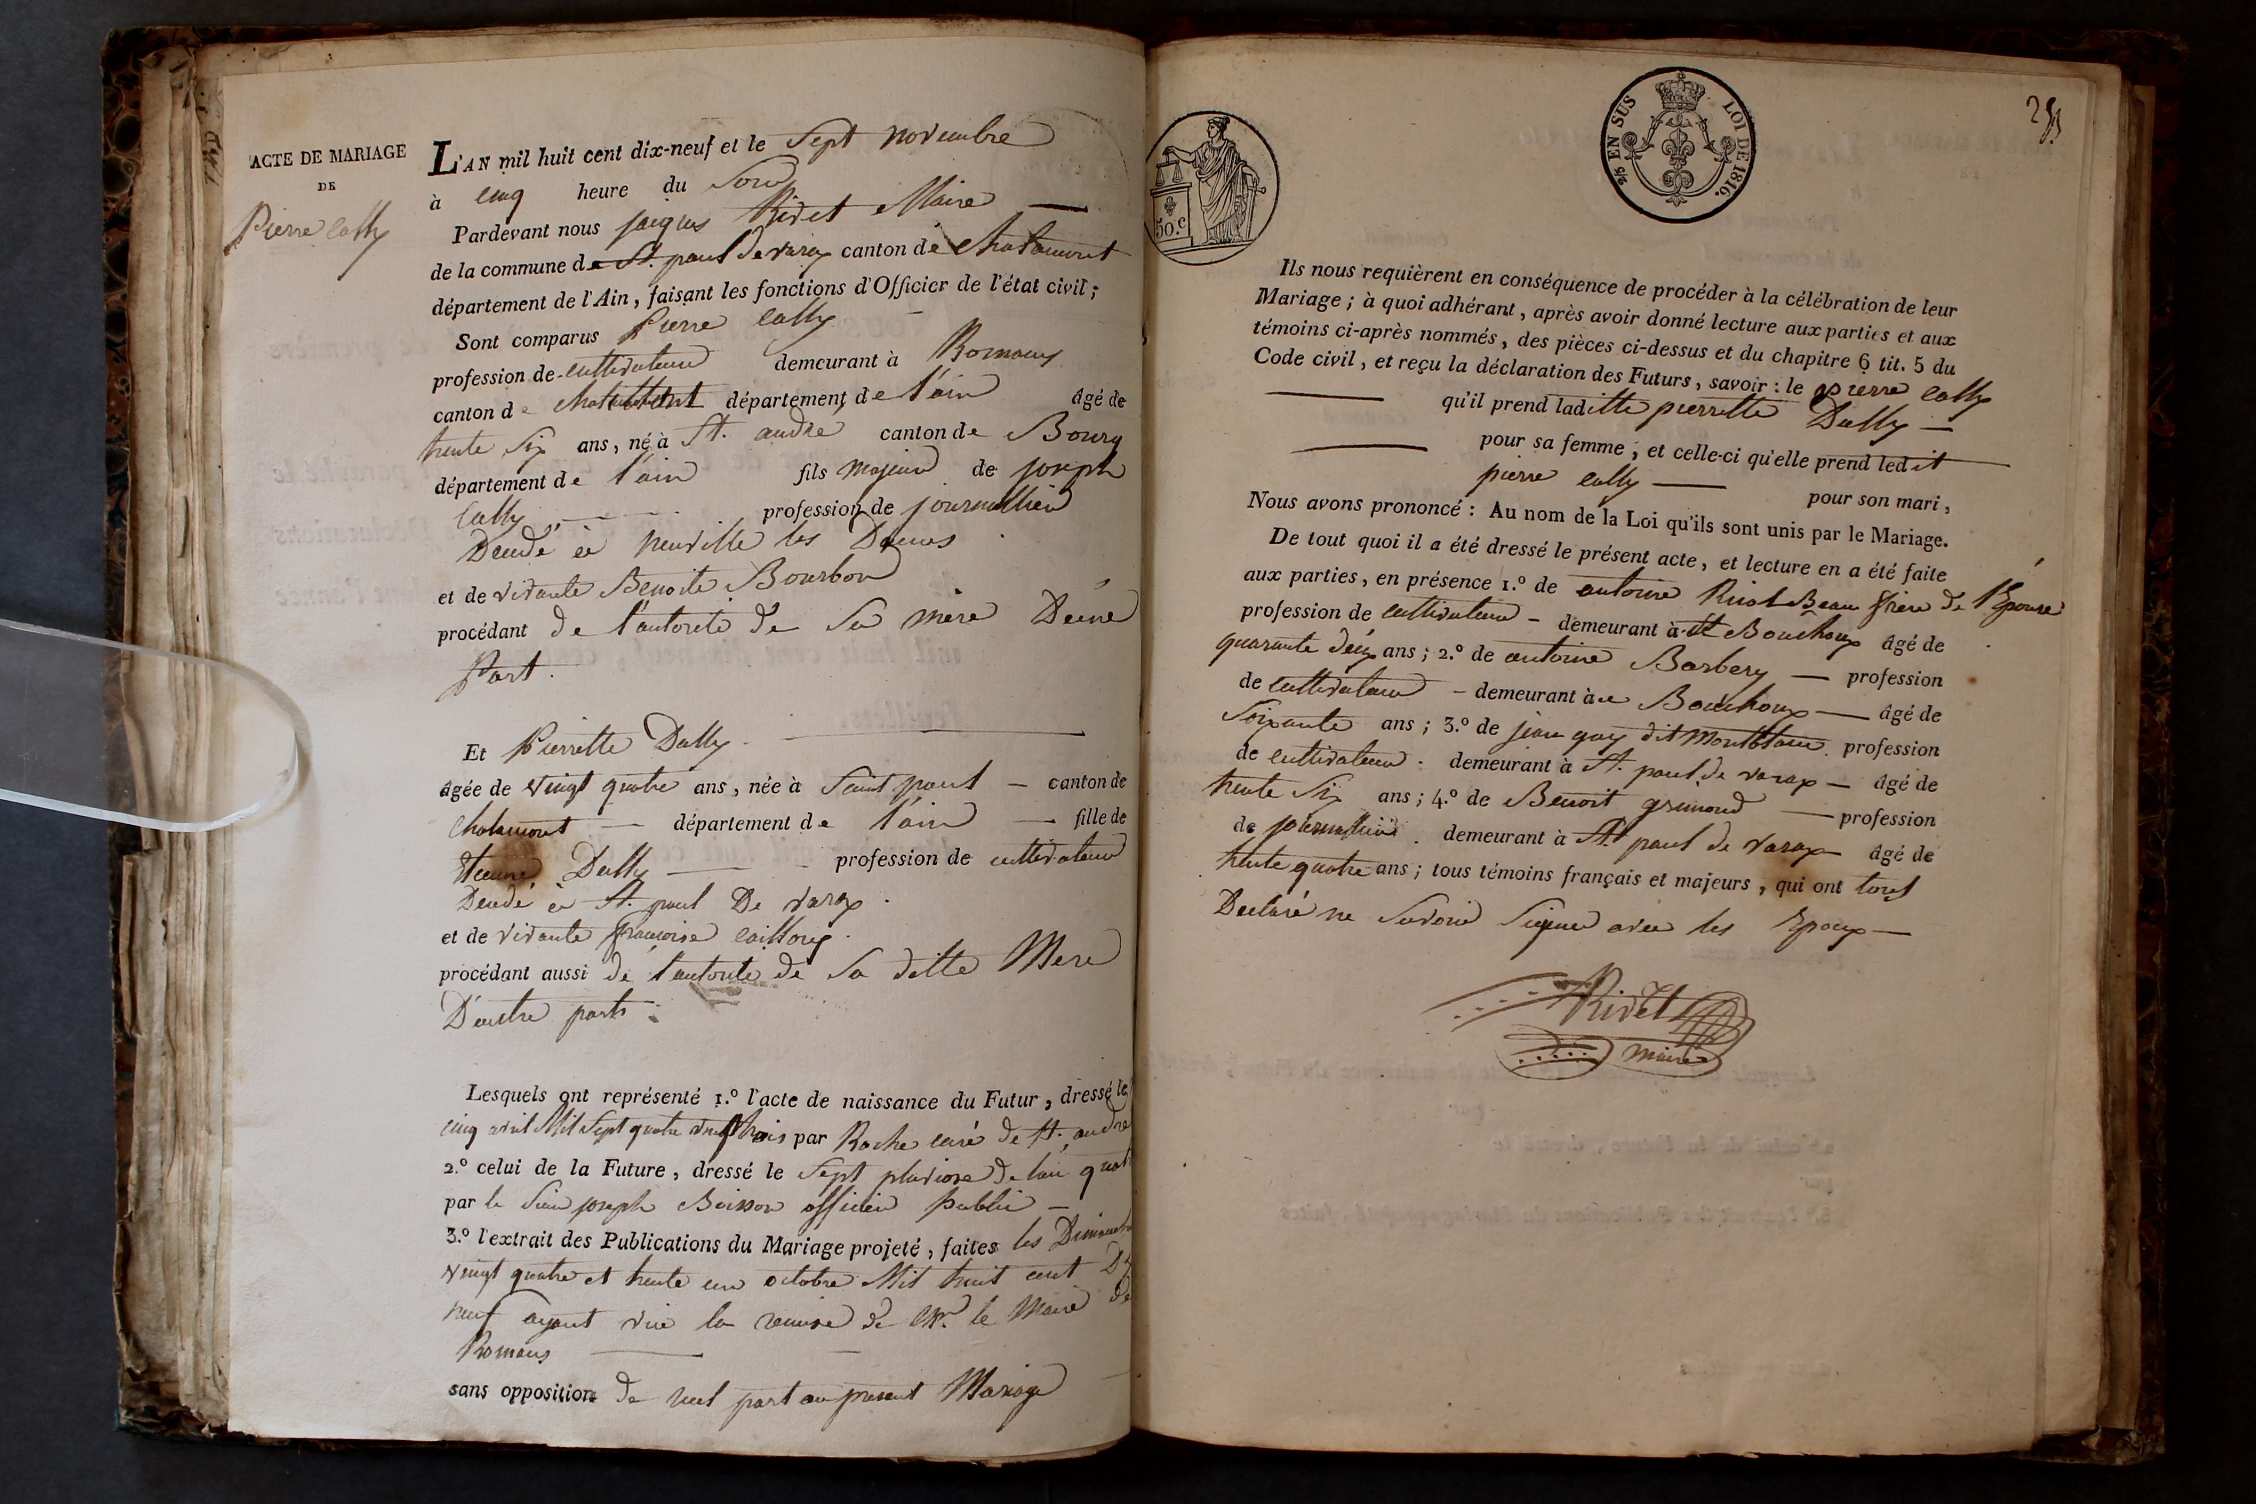 ACTE DE MARIAGE
DE
Pierre Cally
L'AN mil huit cent dix-neuf et le Sept novembre
à cinq heure du Soir
Pardevant nous jacques Rivet Maire
de la commune de St. paul de varax canton de Chalamont
département de l'Ain, faisant les fonctions d'Officier de l'état civil;
Sont comparus Pierre Cally
profession de cultivateur demeurant à Romans
canton de département de l'ain âgé de
trente Six ans, né à St. andré canton de Bourg
département de l'ain fils Majeur de joseph
Cally profession de journallier
Décédé à neuville les Dames
et de vivante Benoite Bourbon
procédant de l'autorité de Sa mère D'une
Part.
Et Pierrette Dally
âgée de vingt quatre ans, née à Saint paul canton de
Chalamont département de l'ain fille de
Etienne Dally profession de cultivateur
Décedé à St. paul De varax
et de vivante françoise
procédant aussi de l'autorité de Sa ditte Mere
D'autre part.
Lesquels ont représenté 1.º l'acte de naissance du Futur, dressé le
cinq avril Mil Sept quatre vingt trois par Roche curé de St. andré
2.º celui de la Future, dressé le Sept pluviose de l'an quatre
par le Sieur joseph Buisson officier public
3.º l'extrait des Publications du Mariage projeté, faites les Dimanche
vingt quatre et trente un octobre Mil huit cent Dix
neuf ayant vue la remise de Mr. le Maire de
Romans
sans opposition de nul part au present Mariage
50.c
25 EN SUS LOI DE 1816.
Ils nous requièrent en conséquence de procéder à la célébration de leur
Mariage; à quoi adhérant, après avoir donné lecture aux parties et aux
témoins ci-après nommés, des pièces ci-dessus et du chapitre 6 tit. 5 du
Code civil, et reçu la déclaration des Futurs, savoir: le pierre cally
qu'il prend laditte pierrette Dally
pour sa femme; et celle-ci qu'elle prend ledit
pierre cally pour son mari,
Nous avons prononcé: Au nom de la Loi qu'ils sont unis par le Mariage.
De tout quoi il a été dressé le présent acte, et lecture en a été faite
aux parties, en présence 1.º de antoine Beau frère de l'Epouse
profession de cultivateur demeurant à St Bouchoux âgé de
quarante deux ans; 2.º de antoine Barbery profession
de cultivateur demeurant à Bouchoux âgé de
Soixante ans; 3.º de jean guy dit Montblanc profession
de cultivateur demeurant à St. paul de varax âgé de
trente Six ans; 4.º de Benoit grimond profession
de journallier demeurant à St. paul de varax âgé de
trente quatre ans; tous témoins français et majeurs, qui ont tous
Declaré ne Savoir Signer avec les Epoux
Rivet
maire